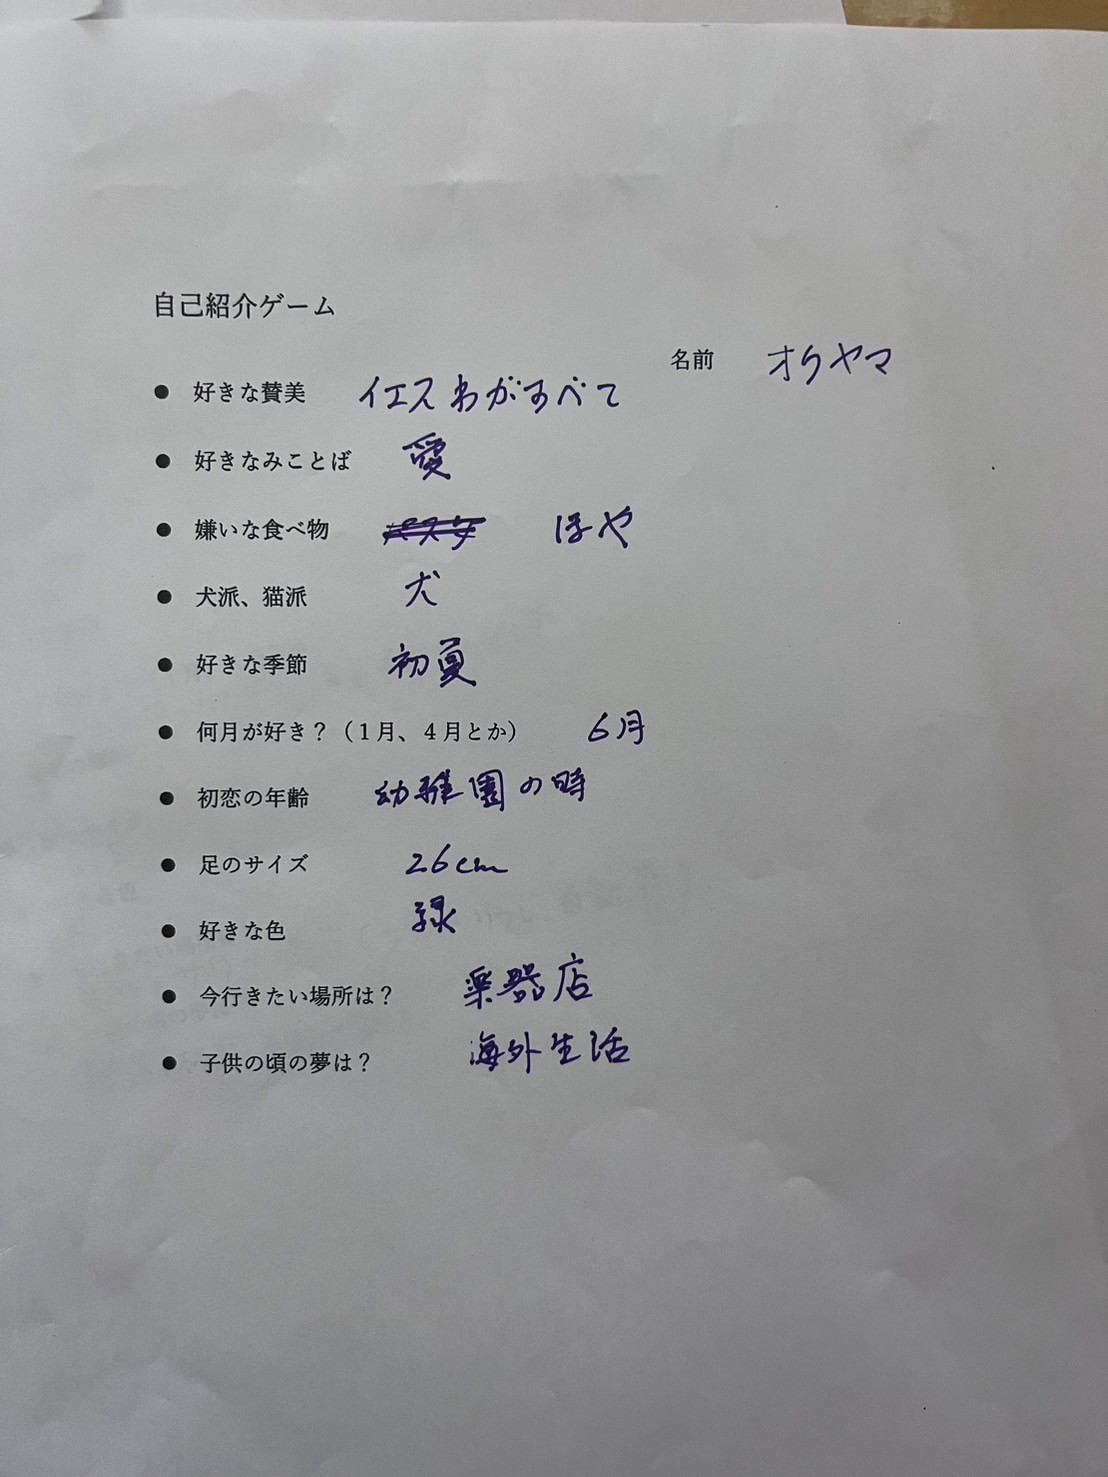 自己紹介ゲーム
名前 オクヤマ
● 好きな賛美 イエスわがすべて
● 好きなみことば 愛
● 嫌いな食べ物 ほや
● 犬派、猫派 犬
● 好きな季節 初夏
● 何月が好き？（１月、４月とか） 6月
● 初恋の年齢 幼稚園の時
● 足のサイズ 26cm
● 好きな色 緑
● 今行きたい場所は？ 楽器店
● 子供の頃の夢は？ 海外生活